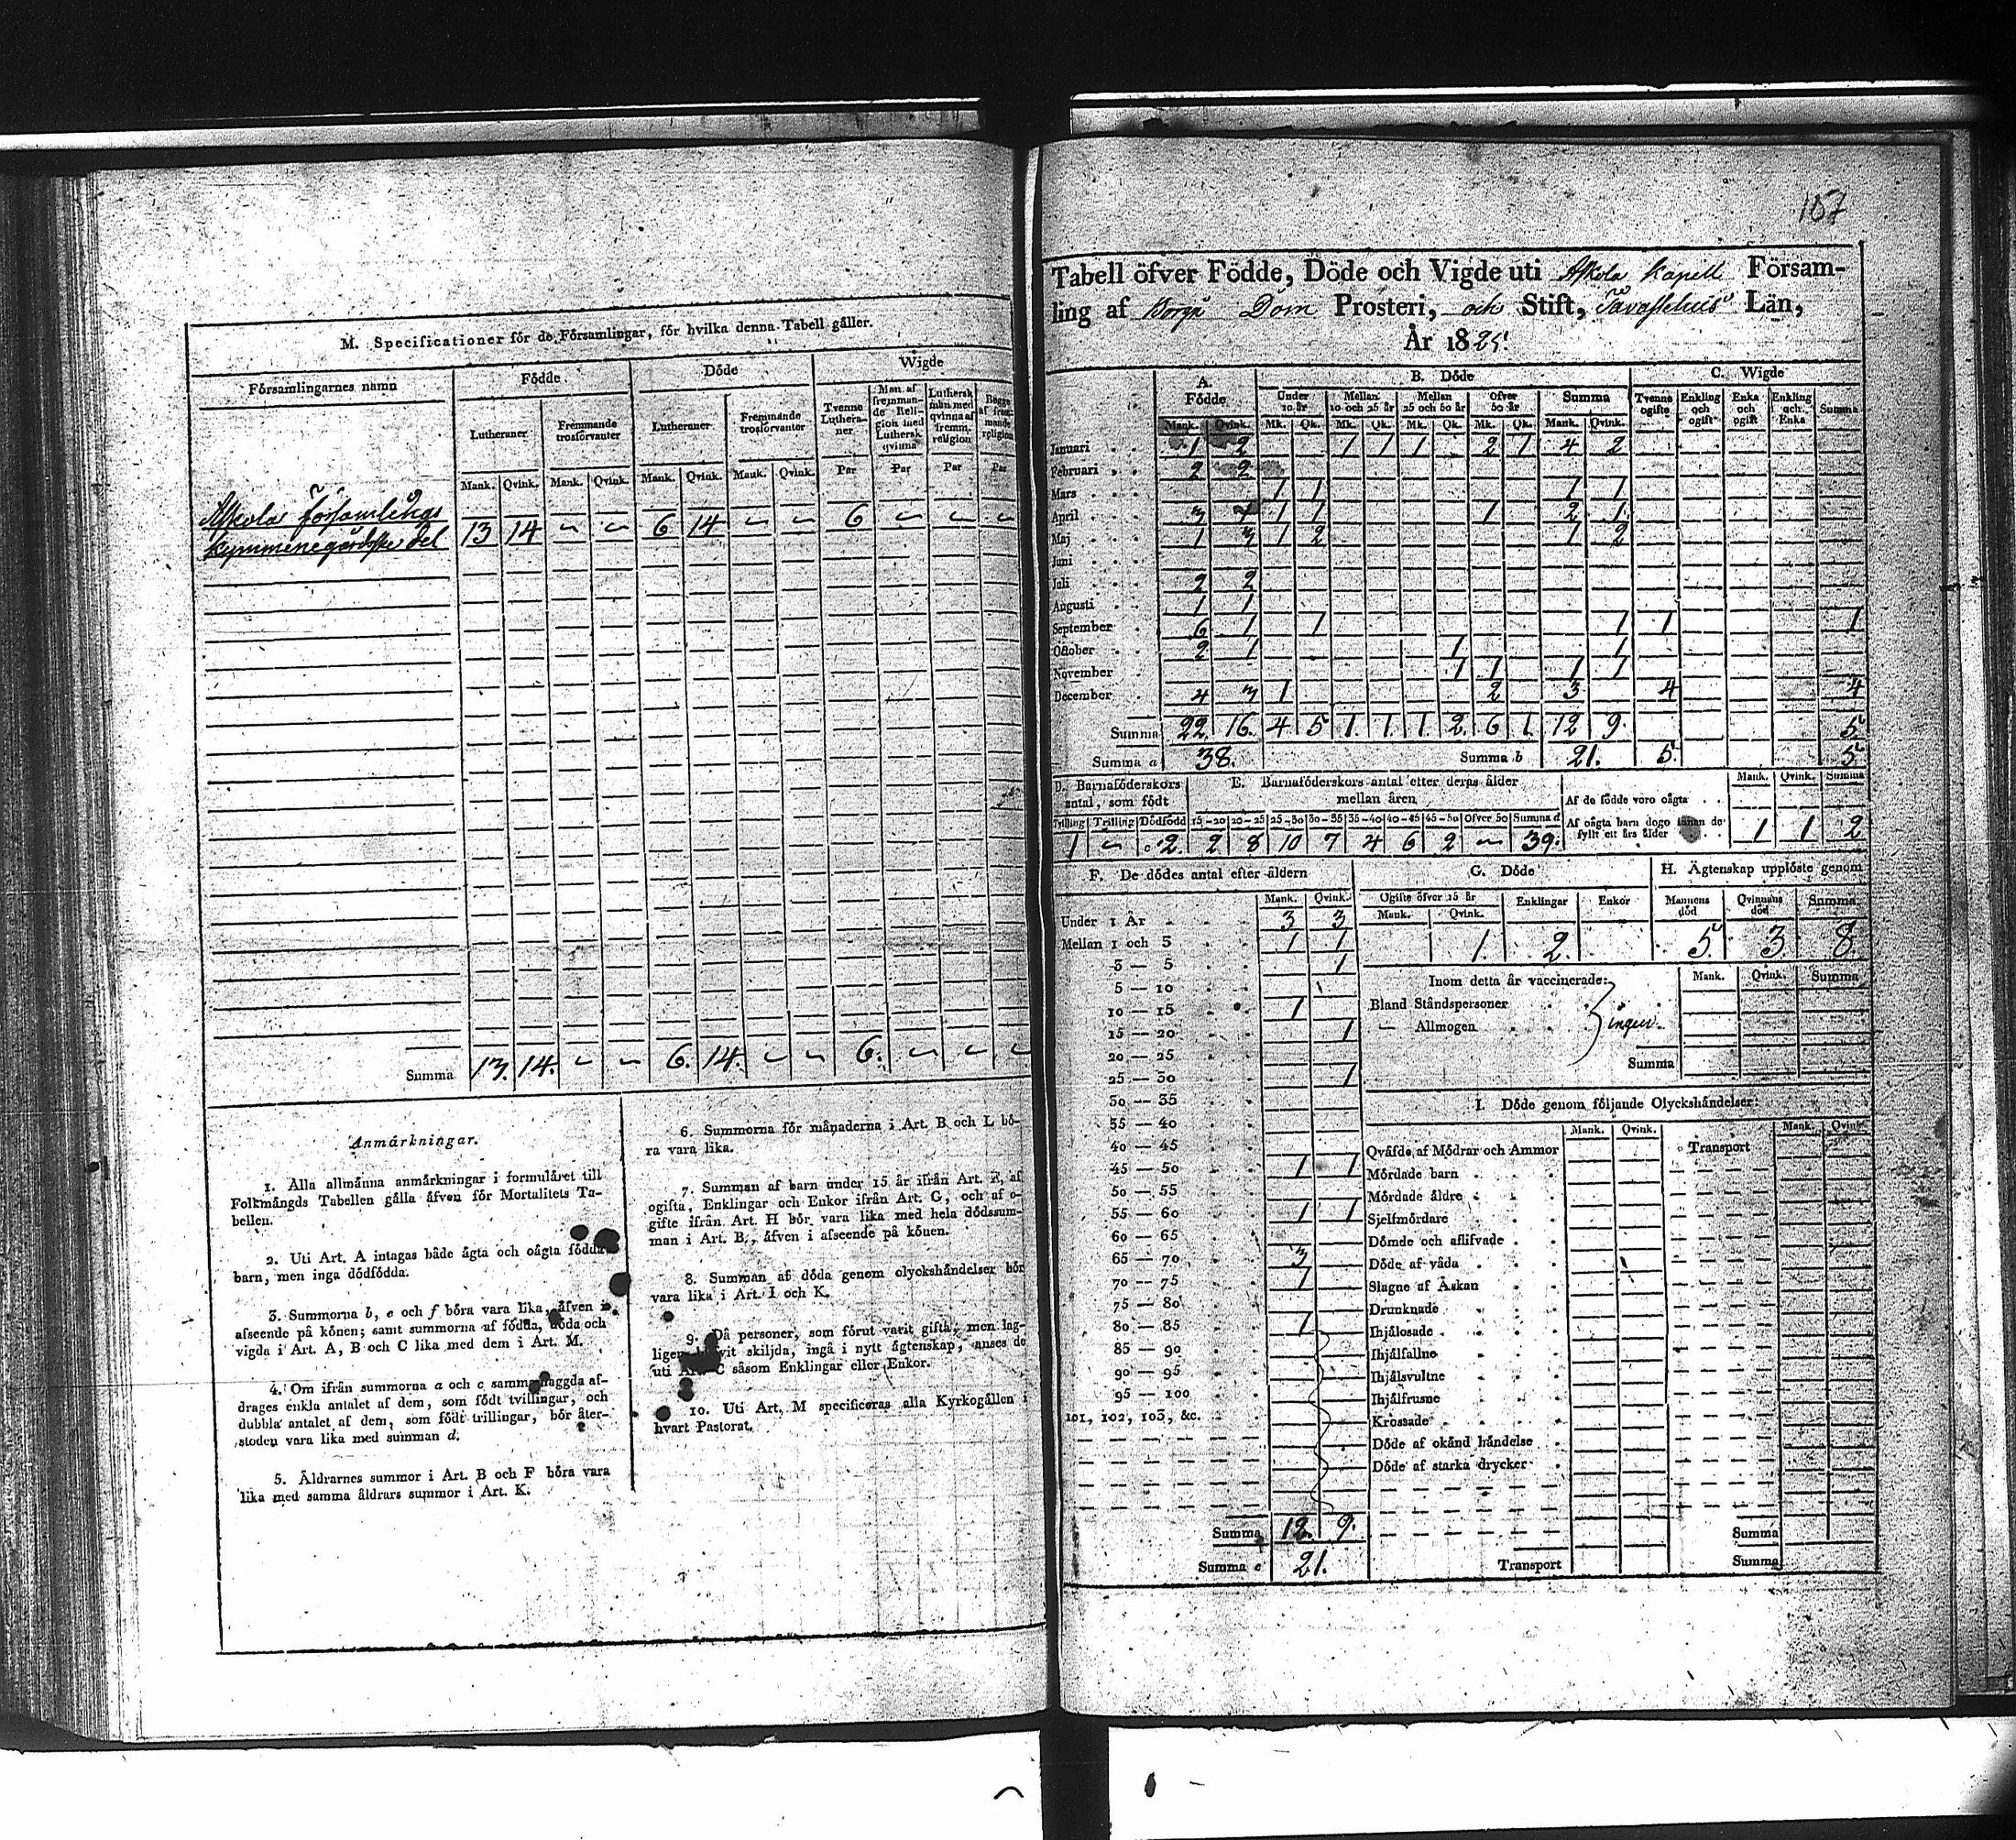 M. Specificationer för de Församlingar, för hvilka denna Tabell gäller.
Församlingarnes namn | Födde | Döde | Wigde
Lutheraner | Fremmande trosförvanter | Lutheraner | Fremmande trosförvanter | Tvenne Lutheraner | Man af fremmande Religion med Luthersk qvinna | Luthersk man med qvinna af fremm. religion | Begge af fremmande religion
Mank. Qvink. Mank. Qvink. Mank. Qvink. Mank. Qvink. Par Par Par Par
Askola församlings
Kymmenegårdske del 13 14 ~ ~ 6 14 ~ ~ 6 ~ ~ ~
Summa 13. 14. ~ ~ 6. 14. ~ ~ 6. ~ ~ ~
Anmärkningar.
1. Alla allmänna anmärkningar i formuläret till
Folkmängds Tabellen gälla äfven för Mortalitets Ta-
bellen.
2. Uti Art. A intagas både ägta och oägta födda
barn, men inga dödfödda.
3. Summorna b, e och f böra vara lika, äfven i
afseende på könen; samt summorna af födda, döda och
vigda i Art. A, B och C lika med dem i Art. M.
4. Om ifrån summorna a och c sammanlaggda af-
drages enkla antalet af dem, som födt tvillingar, och
dubbla antalet af dem, som födt trillingar, bör åter-
stoden vara lika med summan d.
5. Åldrarnes summor i Art. B och F böra vara
lika med samma åldrars summor i Art. K.
6. Summorna för månaderna i Art. B och L bö-
ra vara lika.
7. Summan af barn under 15 år ifrån Art. F, af
ogifta, Enklingar och Enkor ifrån Art. G, och af o-
gifte ifrån Art. H bör vara lika med hela dödssum-
man i Art. B., äfven i afseende på könen.
8. Summan af döda genom olyckshändelser bör
vara lika i Art. I och K.
9. Då personer, som förut varit gifta, men lag-
ligen skiljda, ingå i nytt ägtenskap, anses de
uti C såsom Enklingar eller Enkor.
10. Uti Art. M specificeras alla Kyrkogällen i
hvart Pastorat.
157
Tabell öfver Födde, Döde och Vigde uti Askola Kapell Försam-
ling af Borgå Dom Prosteri, och Stift, Tavastehus Län,
År 1825.
A. Födde | B. Döde | C. Wigde
Under 10 år | Mellan 10 och 25 år | Mellan 25 och 50 år | Öfver 50 år | Summa | Tvenne ogifte | Enkling och ogift | Enka och ogift | Enkling och Enka | Summa
Mank. Qvink. Mk. Qk. Mk. Qk. Mk. Qk. Mk. Qk. Mank. Qvink.
Januari 1 2 1 1 1 2 1 4 2
Februari 2 2
Mars 1 1 1 1
April 3 1 1 1 2 1
Maj 1 3 1 2 1 2
Juni
Juli 2 2
Augusti 1 1
September 6 1 1 1 1 1
October 2 1 1 1
November 1 1 1 1
December 4 3 1 2 3 4 4
Summa 22. 16. 4 5 1. 1. 1. 2. 6 1. 12 9. 5.
Summa a 38. Summa b 21. 5. 5
D. Barnaföderskors antal, som födt | E. Barnaföderskors antal efter deras ålder mellan åren | Mank. Qvink. Summa
Tvilling | Trilling | Dödfödd | 15-20 | 20-25 | 25-30 | 30-35 | 35-40 | 40-45 | 45-50 | Öfver 50 | Summa d
1 ~ 2. 2 8 10 7 4 6 2 ~ 39.
Af de födde voro oägta
Af oägta barn dogo innan de fyllt ett års ålder 1 1 2
F. De dödes antal efter åldern
Mank. Qvink.
Under 1 År 3 3
Mellan 1 och 3 1 1
3 — 5 1
5 — 10
10 — 15 1
15 — 20 1
20 — 25
25 — 30 1
30 — 35
35 — 40
40 — 45
45 — 50 1 1
50 — 55
55 — 60 1 1
60 — 65
65 — 70 3
70 — 75 1
75 — 80
80 — 85 1
85 — 90
90 — 95
95 — 100
101, 102, 103, &c.
Summa 12. 9.
Summa e 21.
G. Döde
Ogifte öfver 15 år | Enklingar | Enkor
Mank. Qvink.
1. 2.
H. Ägtenskap upplöste genom
Mannens död | Qvinnans död | Summa
5. 3. 8.
Inom detta år vaccinerade: Mank. Qvink. Summa
Bland Ståndspersoner
— Allmogen
ingen
Summa
I. Döde genom följande Olyckshändelser:
Mank. Qvink. Transport Mank. Qvink.
Qväfde af Mödrar och Ammor
Mördade barn
Mördade äldre
Sjelfmördare
Dömde och aflifvade
Döde af våda
Slagne af Åskan
Drunknade
Ihjälosade
Ihjälfallne
Ihjälsvultne
Ihjälfrusne
Krossade
Döde af okänd händelse
Döde af starka drycker
Summa
Transport Summa